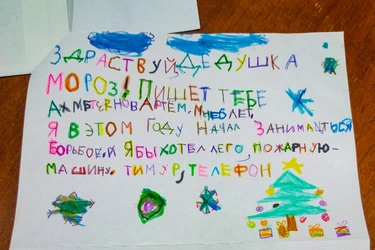 ЗДРАСТВУЙ,ДЕДУШКА
МОРОЗ! ПИШЕТ ТЕБЕ
АРТЁМ. МНЕ 6 ЛЕТ,
Я В ЭТОМ ГОДУ НАЧАЛ ЗАНИМАТЬСЯ
БОРЬБОЙ. Я БЫ ХОТЕЛ ЛЕГО, ПОЖАРНУЮ-
МАШИНУ, ТИМУР, ТЕЛЕФОН